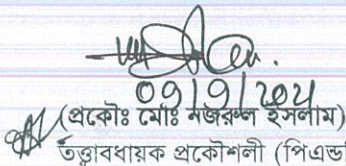 09/9/2024
(প্রকৌঃ মোঃ নজরুল ইসলাম)
তত্ত্বাবধায়ক প্রকৌশলী (পিএন্ড